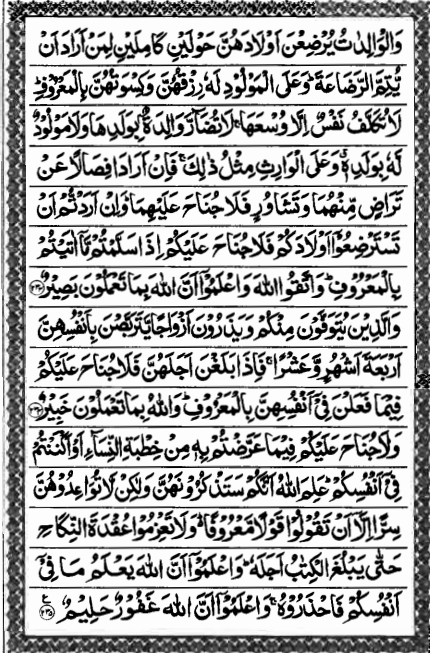 وَالْوَالِدٰتُ يُرْضِعْنَ اَوْلَادَهُنَّ حَوْلَيْنِ كَامِلَيْنِ لِمَنْ اَرَادَ اَنْ
يُّتِمَّ الرَّضَاعَةَ ؕ وَعَلَى الْمَوْلُوْدِ لَهٗ رِزْقُهُنَّ وَكِسْوَتُهُنَّ بِالْمَعْرُوْفِ ؕ
لَا تُكَلَّفُ نَفْسٌ اِلَّا وُسْعَهَا ۚ لَا تُضَآرَّ وَالِدَةٌۢ بِوَلَدِهَا وَلَا مَوْلُوْدٌ
لَّهٗ بِوَلَدِهٖ ۗ وَعَلَى الْوَارِثِ مِثْلُ ذٰلِكَ ۚ فَاِنْ اَرَادَا فِصَالًا عَنْ
تَرَاضٍ مِّنْهُمَا وَتَشَاوُرٍ فَلَا جُنَاحَ عَلَيْهِمَا ؕ وَاِنْ اَرَدْتُّمْ اَنْ
تَسْتَرْضِعُوْۤا اَوْلَادَكُمْ فَلَا جُنَاحَ عَلَيْكُمْ اِذَا سَلَّمْتُمْ مَّاۤ اٰتَيْتُمْ
بِالْمَعْرُوْفِ ؕ وَاتَّقُوا اللّٰهَ وَاعْلَمُوْۤا اَنَّ اللّٰهَ بِمَا تَعْمَلُوْنَ بَصِيْرٌ ﴿۲۳۳﴾
وَالَّذِيْنَ يُتَوَفَّوْنَ مِنْكُمْ وَيَذَرُوْنَ اَزْوَاجًا يَّتَرَبَّصْنَ بِاَنْفُسِهِنَّ
اَرْبَعَةَ اَشْهُرٍ وَّعَشْرًا ۚ فَاِذَا بَلَغْنَ اَجَلَهُنَّ فَلَا جُنَاحَ عَلَيْكُمْ
فِيْمَا فَعَلْنَ فِيْۤ اَنْفُسِهِنَّ بِالْمَعْرُوْفِ ؕ وَاللّٰهُ بِمَا تَعْمَلُوْنَ خَبِيْرٌ ﴿۲۳۴﴾
وَلَا جُنَاحَ عَلَيْكُمْ فِيْمَا عَرَّضْتُمْ بِهٖ مِنْ خِطْبَةِ النِّسَآءِ اَوْ اَكْنَنْتُمْ
فِيْۤ اَنْفُسِكُمْ ؕ عَلِمَ اللّٰهُ اَنَّكُمْ سَتَذْكُرُوْنَهُنَّ وَلٰكِنْ لَّا تُوَاعِدُوْهُنَّ
سِرًّا اِلَّاۤ اَنْ تَقُوْلُوْا قَوْلًا مَّعْرُوْفًا ؕ وَلَا تَعْزِمُوْا عُقْدَةَ النِّكَاحِ
حَتّٰى يَبْلُغَ الْكِتٰبُ اَجَلَهٗ ؕ وَاعْلَمُوْۤا اَنَّ اللّٰهَ يَعْلَمُ مَا فِيْۤ
اَنْفُسِكُمْ فَاحْذَرُوْهُ ۚ وَاعْلَمُوْۤا اَنَّ اللّٰهَ غَفُوْرٌ حَلِيْمٌ ﴿۲۳۵﴾ ع